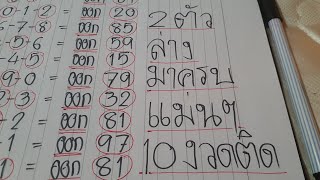 0-1-2 = ออก 20
-7-8 = ออก 85
-5-6 = ออก 59
-4-5 = ออก 15
-9-0 = ออก 79
-3 = ออก 32
-2 = ออก 81
-1 = ออก 97
-1 = ออก 81
2 ตัว
ล่าง
มาครบ
แม่นๆ
10 งวดติด